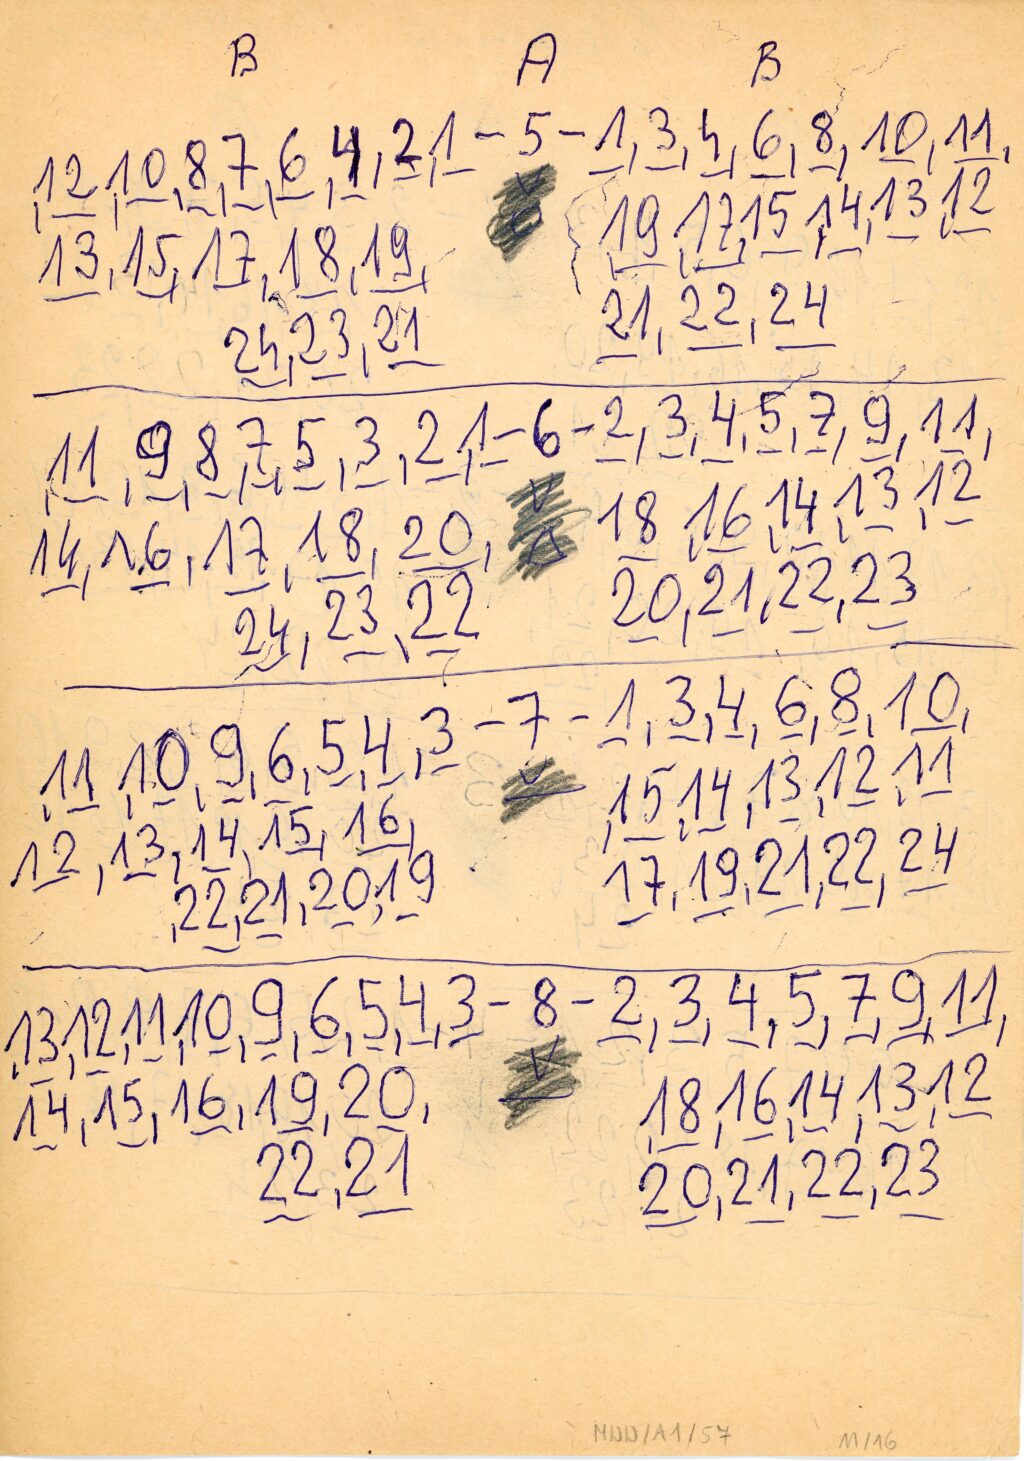 B A B
,12,10,8,7,6,4,2,1-5-1,3,4,6,8,10,11,
13,15,17,18,19, 19,17,15,14,13,12
24,23,21 21,22,24
,11,9,8,7,5,3,2,1-6-2,3,4,5,7,9,11,
14,16,17,18,20, 18,16,14,13,12
24,23,22 20,21,22,23
,11,10,9,6,5,4,3-7-1,3,4,6,8,10,
12,13,14,15,16, ,15,14,13,12,11
,22,21,20,19 17,19,21,22,24
,13,12,11,10,9,6,5,4,3-8-2,3,4,5,7,9,11,
14,15,16,19,20, ,18,16,14,13,12
22,21 20,21,22,23
M/16